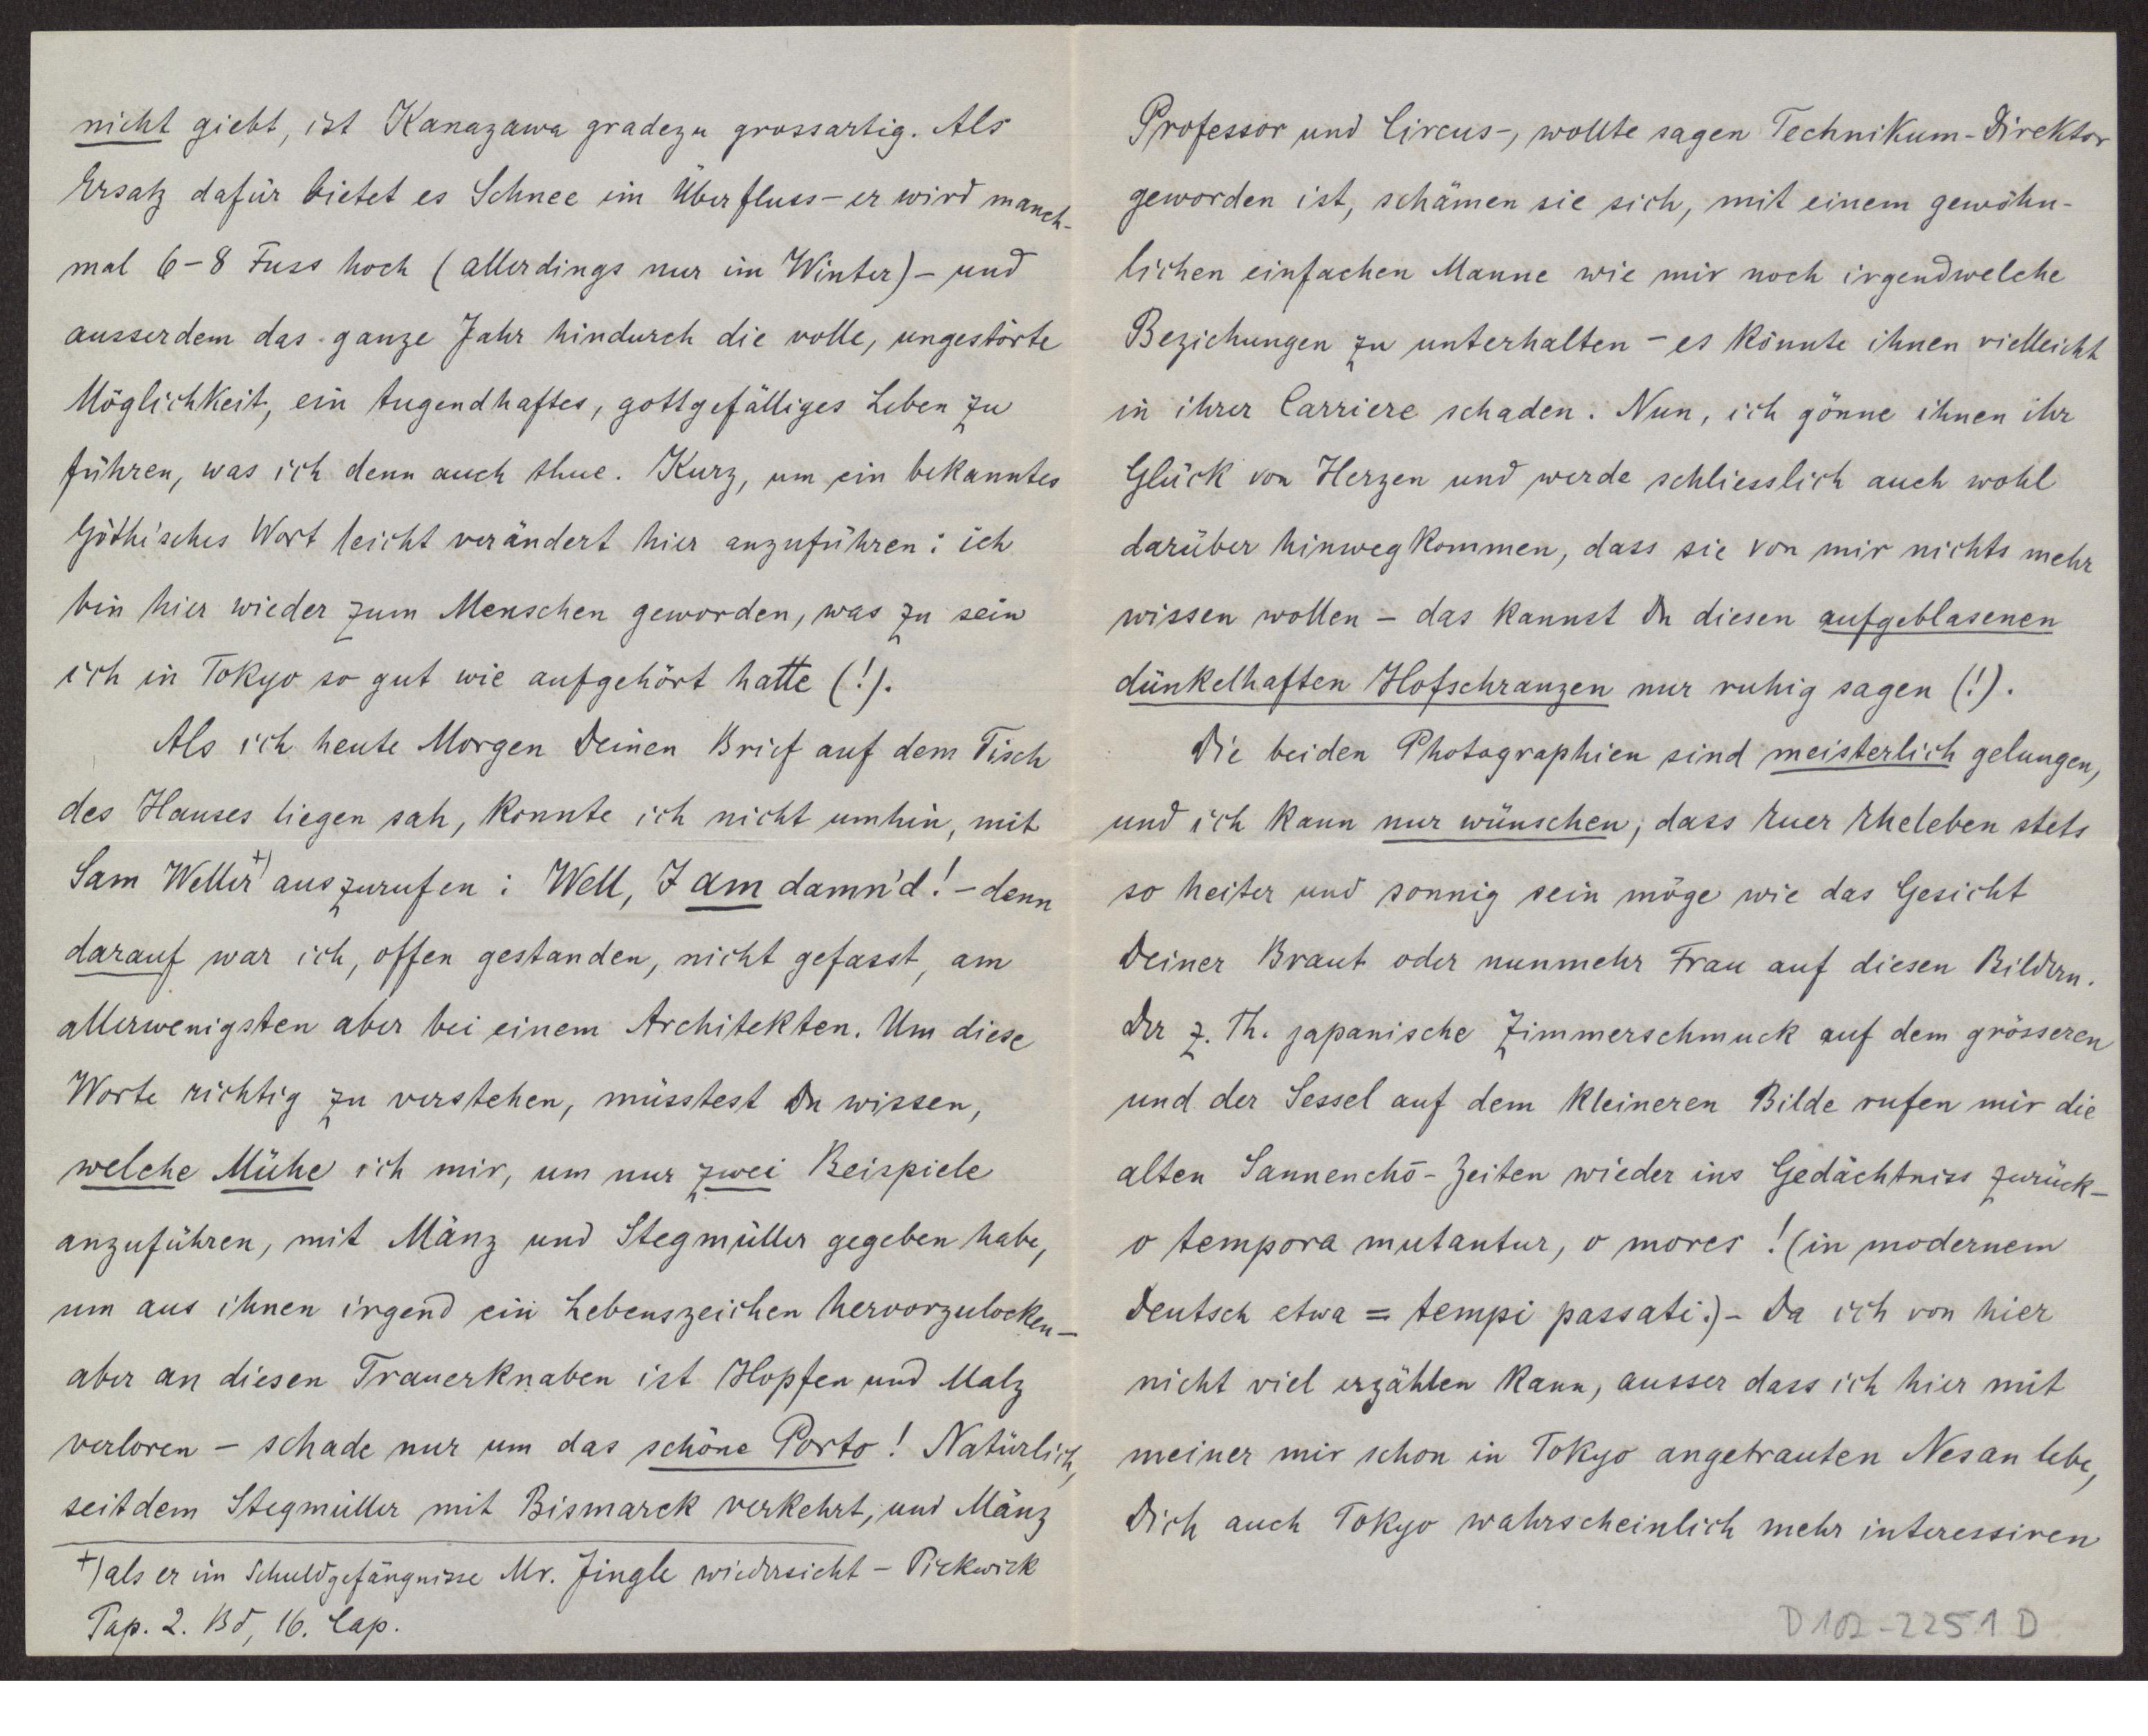 nicht giebt, ist Kanazawa gradezu grossartig. Als
Ersatz dafür bietet es Schnee im Überfluss – er wird manch-
mal 6–8 Fuss hoch (allerdings nur im Winter) – und
ausserdem das ganze Jahr hindurch die volle, ungestörte
Möglichkeit, ein tugendhaftes, gottgefälliges Leben zu
führen, was ich denn auch thue. Kurz, um ein bekanntes
Göthi'sches Wort leicht verändert hier anzuführen: ich
bin hier wieder zum Menschen geworden, was zu sein
ich in Tokyo so gut wie aufgehört hatte (!).
Als ich heute Morgen Deinen Brief auf dem Tisch
des Hauses liegen sah, konnte ich nicht umhin, mit
Sam Weller +) auszurufen: Well, I am damn'd! – denn
darauf war ich, offen gestanden, nicht gefasst, am
allerwenigsten aber bei einem Architekten. Um diese
Worte richtig zu verstehen, müsstest Du wissen,
welche Mühe ich mir, um nur zwei Beispiele
anzuführen, mit Mänz und Stegmüller gegeben habe,
um aus ihnen irgend ein Lebenszeichen hervorzulocken –
aber an diesen Trauerknaben ist Hopfen und Malz
verloren – schade nur um das schöne Porto! Natürlich,
seitdem Stegmüller mit Bismarck verkehrt, und Mänz
+) als er im Schuldgefängnisse Mr. Jingle wiedersieht – Pickwick
Pap. 2. Bd, 16. Cap.
Professor und Circus-, wollte sagen Technikum-Direktor
geworden ist, schämen sie sich, mit einem gewöhn-
lichen einfachen Manne wie mir noch irgendwelche
Beziehungen zu unterhalten – es könnte ihnen vielleicht
in ihrer Carriere schaden. Nun, ich gönne ihnen ihr
Glück von Herzen und werde schliesslich auch wohl
darüber hinwegkommen, dass sie von mir nichts mehr
wissen wollen – das kannst Du diesen aufgeblasenen
dünkelhaften Hofschranzen nur ruhig sagen (!).
Die beiden Photographien sind meisterlich gelungen,
und ich kann nur wünschen, dass Euer Eheleben stets
so heiter und sonnig sein möge wie das Gesicht
Deiner Braut oder nunmehr Frau auf diesen Bildern.
Der z. Th. japanische Zimmerschmuck auf dem grösseren
und der Sessel auf dem kleineren Bilde rufen mir die
alten Sannenchō-Zeiten wieder ins Gedächtniss zurück –
o tempora mutantur, o mores! (in modernem
Deutsch etwa = tempi passati.) – Da ich von hier
nicht viel erzählen kann, ausser dass ich hier mit
meiner mir schon in Tokyo angetrauten Nesan lebe,
Dich auch Tokyo wahrscheinlich mehr interessiren
D102-2251D